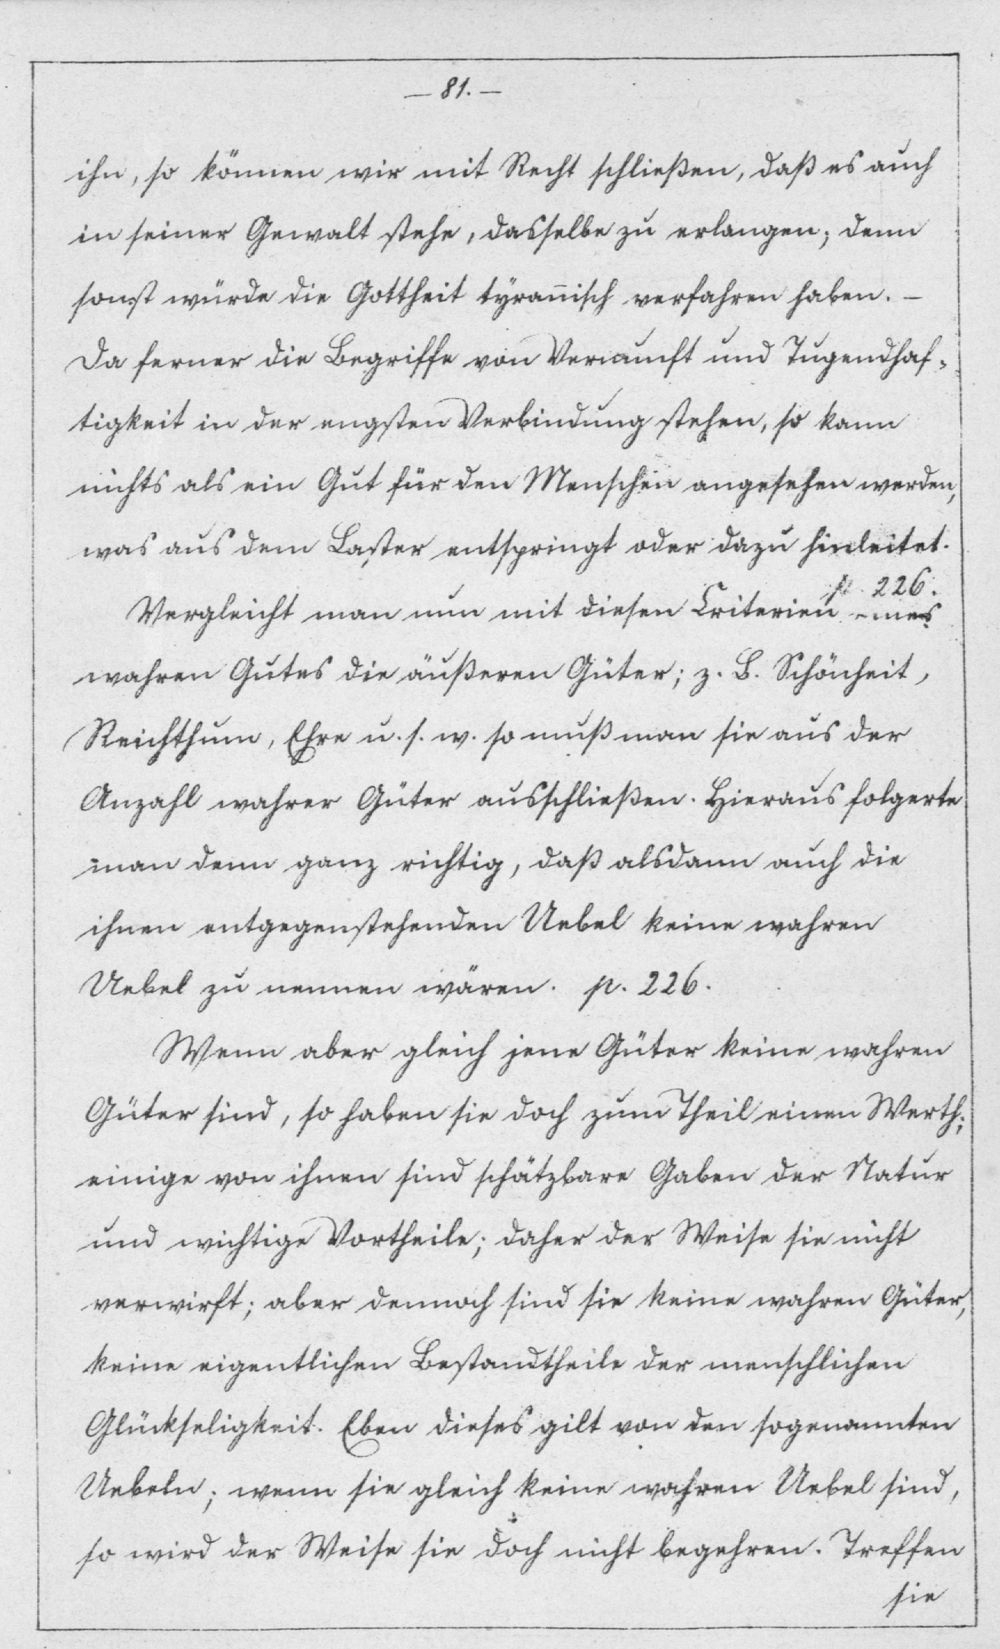 — 81. —
ihn, so können wir mit Recht schließen, daß es auch
in seiner Gewalt stehe, dasselbe zu erlangen; denn
sonst würde die Gottheit tyrañisch verfahren haben. —
Da ferner die Begriffe von Vernunft und Tugendhaf-
tigkeit in der engsten Verbindung stehen, so kann
nichts als ein Gut für den Menschen angesehen werden,
was aus dem Laster entspringt oder dazu hinleitet.
p. 226.
Vergleicht man nun mit diesen Criterien eines
wahren Gutes die äußeren Güter; z. B. Schönheit,
Reichthum, Ehre u. s. w. so muß man sie aus der
Anzahl wahrer Güter ausschließen. Hieraus folgerte
man denn ganz richtig, daß alsdann auch die
ihnen entgegenstehenden Uebel keine wahren
Uebel zu nennen wären. p. 226.
Wenn aber gleich jene Güter keine wahren
Güter sind, so haben sie doch zum Theil einen Werth;
einige von ihnen sind schätzbare Gaben der Natur
und wichtige Vortheile; daher der Weise sie nicht
verwirft; aber dennoch sind sie keine wahren Güter,
keine eigentlichen Bestandtheile der menschlichen
Glückseligkeit. Eben dieses gilt von den sogenannten
Uebeln; wenn sie gleich keine wahren Uebel sind,
so wird der Weise sie doch nicht begehren. Treffen
sie